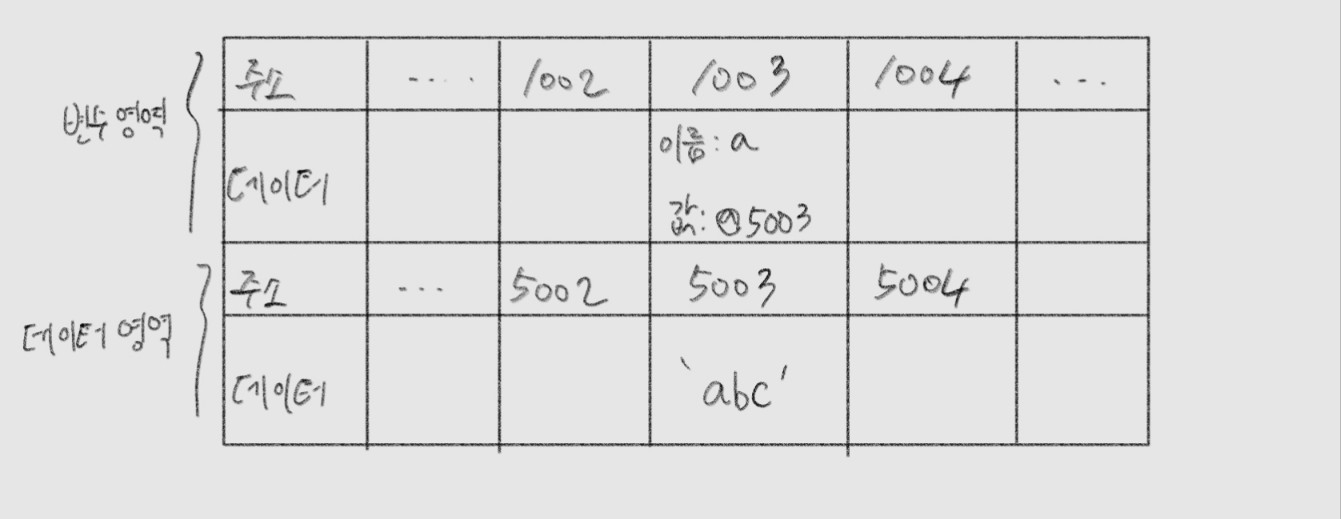 변수 영역
주소 .... 1002 1003 1004 ...
데이터
이름: a
값: @5003
데이터 영역
주소 ... 5002 5003 5004
데이터 'abc'